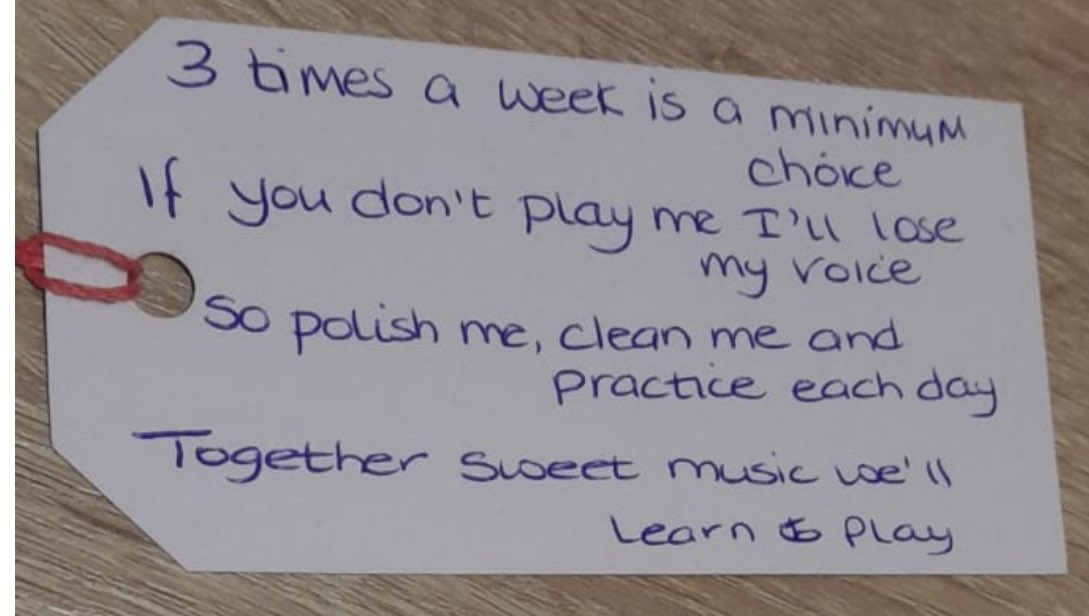 3 times a week is a minimum
choice
If you don't play me I'll lose
my voice
So polish me, clean me and
practice each day
Together sweet music we'll
Learn to play